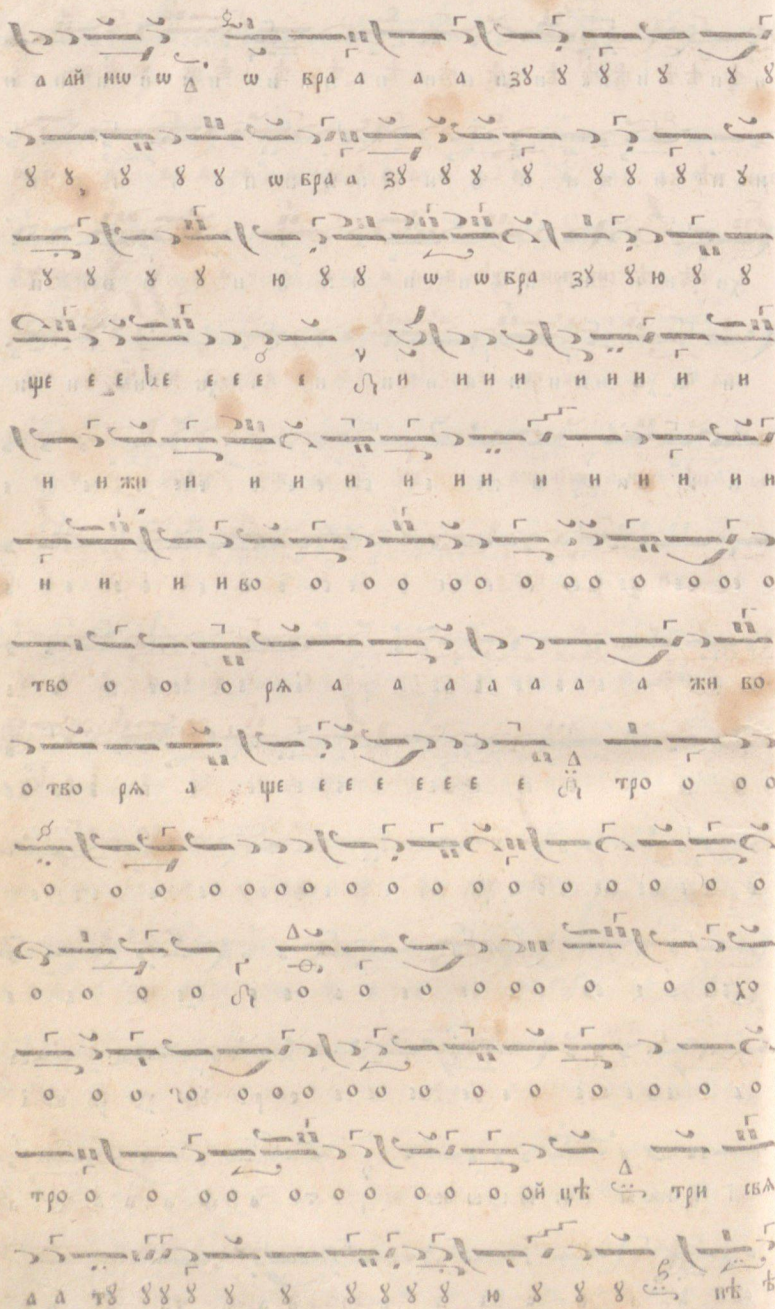 а ай нѡ ѡ ѡ бра а а а зꙋ ꙋ ꙋ ꙋ ꙋ ꙋ
ꙋ ꙋ ꙋ ꙋ ꙋ ѡ бра а зꙋ ꙋ ꙋ ꙋ ꙋ ꙋ ꙋ ꙋ
ꙋ ꙋ ꙋ ꙋ ю ꙋ ꙋ ѡ ѡ бра зꙋ ꙋ ю ꙋ ꙋ
ще е е е е е е е и и и и и и и и и
и и жи и и и и и и и и и и и и и
и и и и во о о о о о о о о о о о о о
тво о о о рѧ а а а а а а а жи во
о тво рѧ а ще е е е е е е е тро о о о
о о о о о о о о о о о о о о о о о о
о о о о о о о о о о о о о хо
о о о о о о о о о о о о о о о
тро о о о о о о о о о о ой цѣ три свѧ
а а тꙋ ꙋ ꙋ ꙋ ꙋ ꙋ ꙋ ꙋ ꙋ ꙋ ю ꙋ ꙋ ꙋ пѣ ѣ